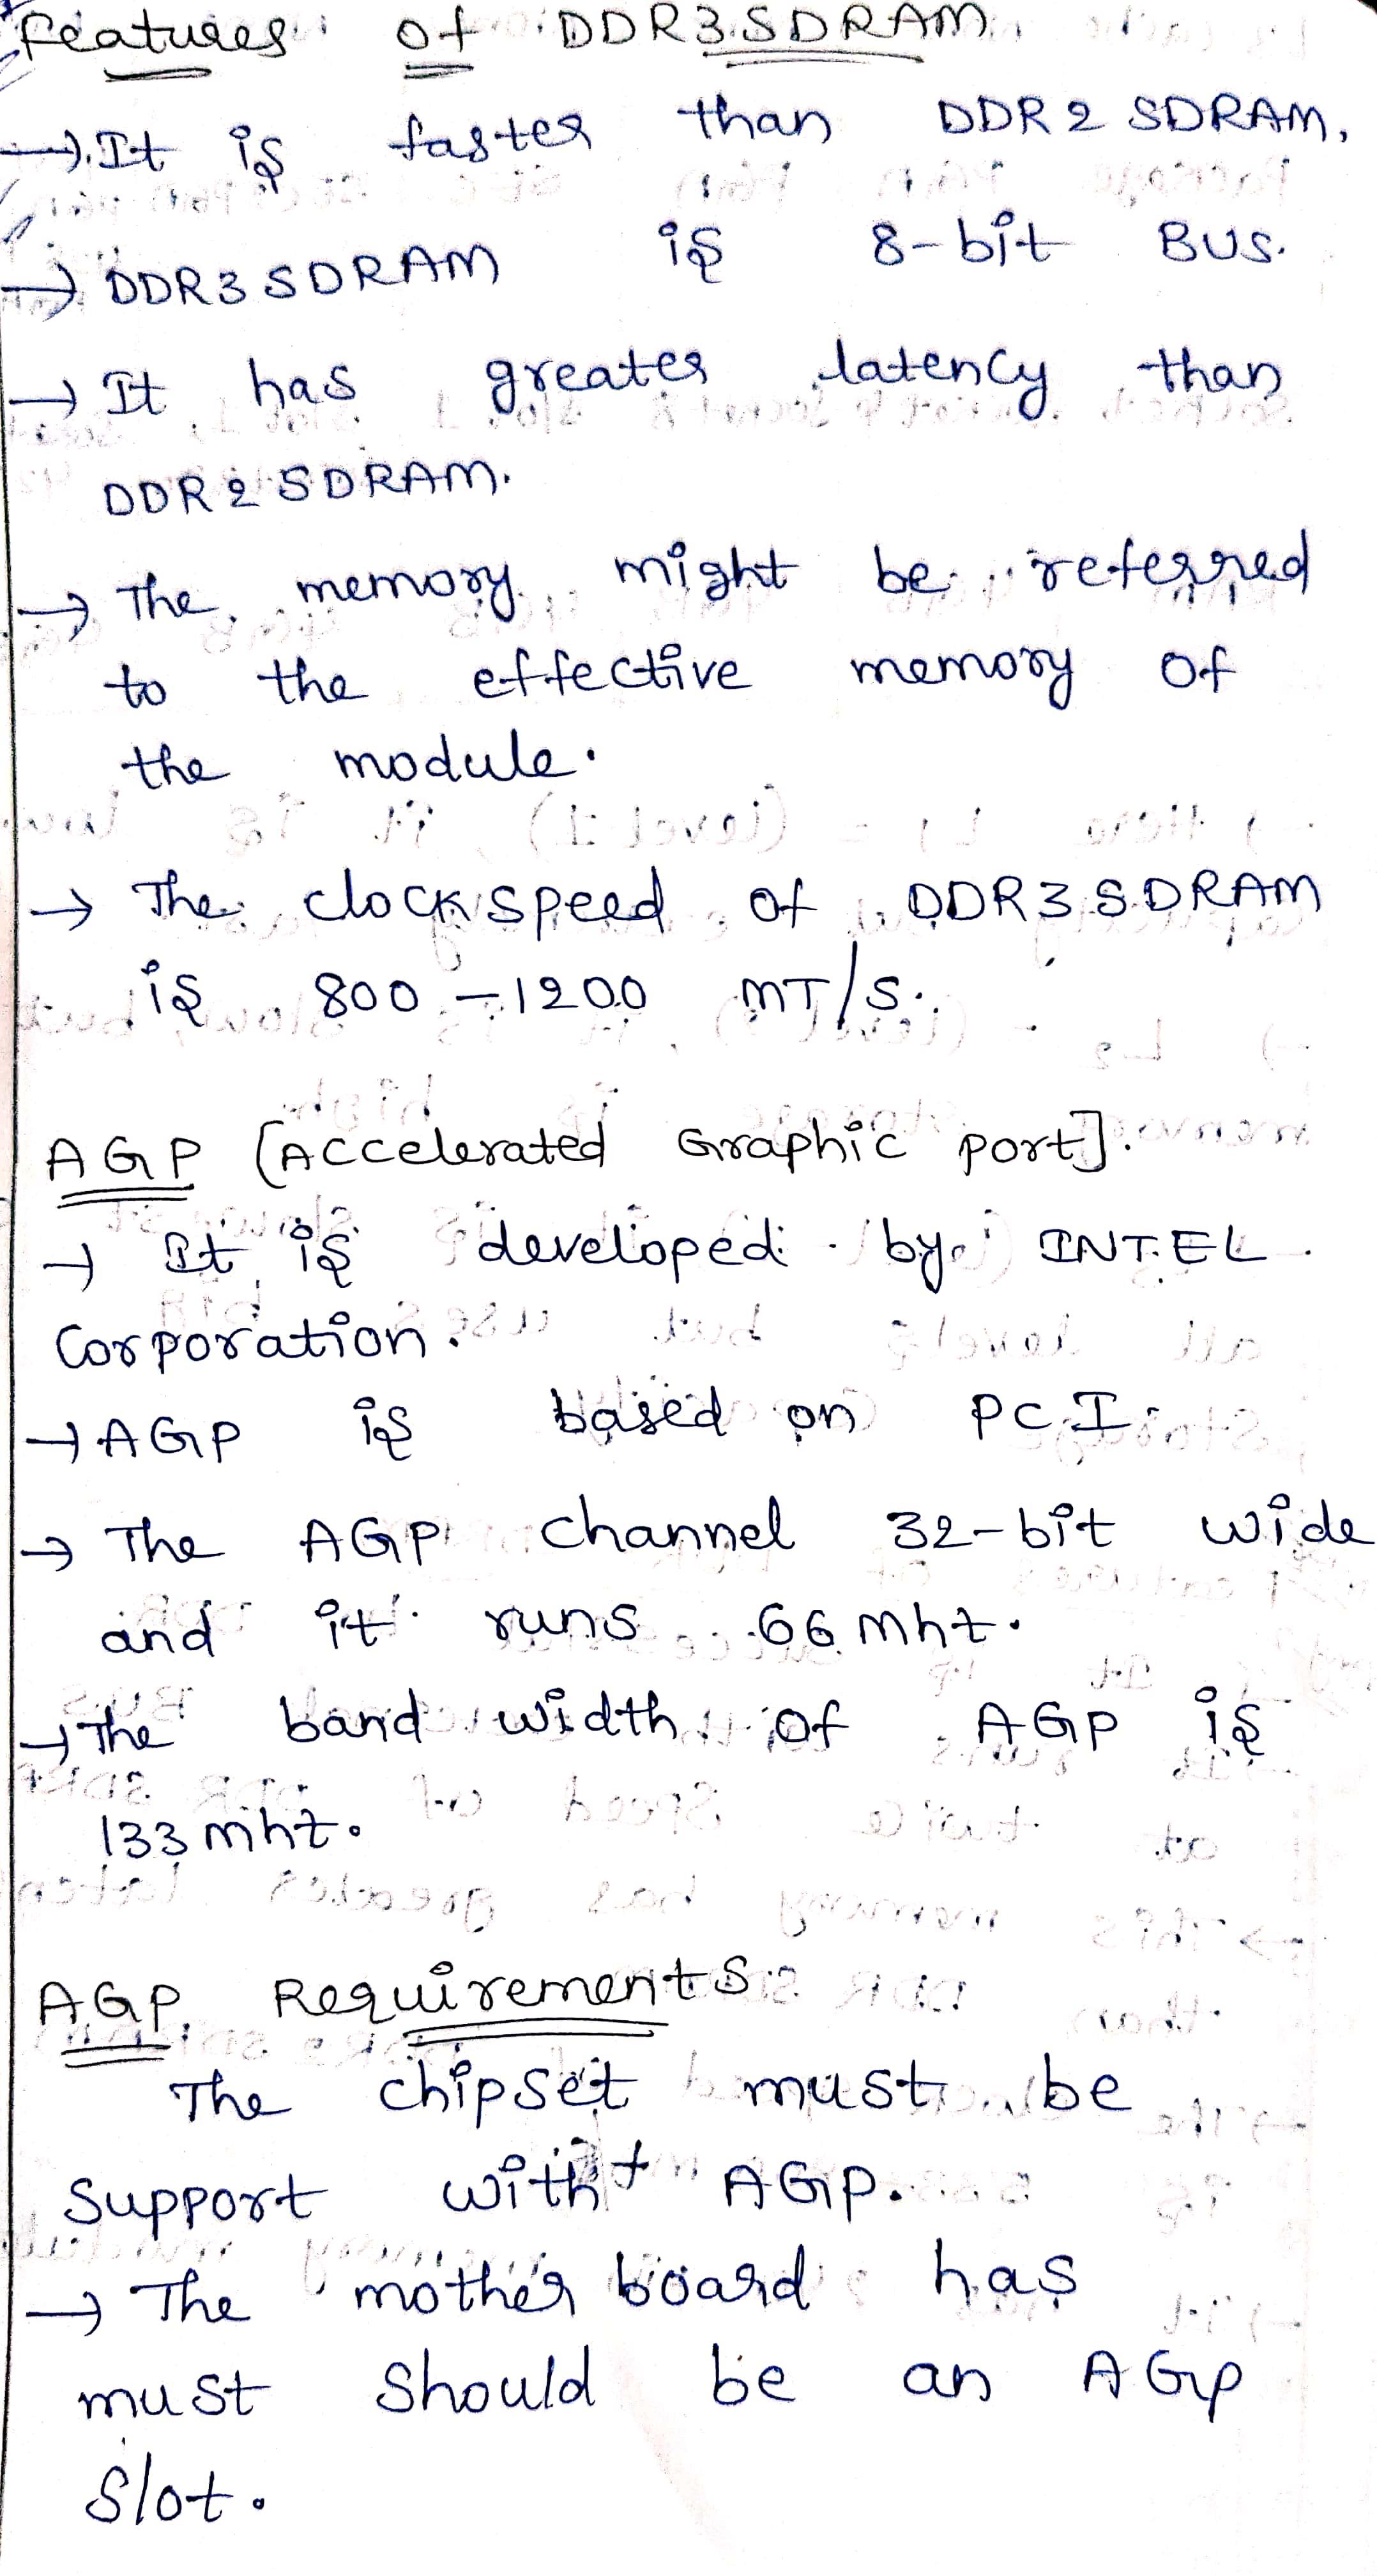 Features of DDR3 SDRAM
→ It is faster than DDR2 SDRAM,
→ DDR3 SDRAM is 8-bit BUS.
→ It has greater latency than
DDR2 SDRAM.
→ The memory might be referred
to the effective memory of
the module.
→ The clock speed of DDR3 SDRAM
is 800 - 1200 MT/S.
AGP [Accelerated Graphic port].
→ It is developed by INTEL
Corporation.
→ AGP is based on PCI.
→ The AGP channel 32-bit wide
and it runs 66 mhz.
→ The band width of AGP is
133 mhz.
AGP Requirements
The chipset must be
support witht AGP.
→ The mother board has
must should be an AGP
slot.